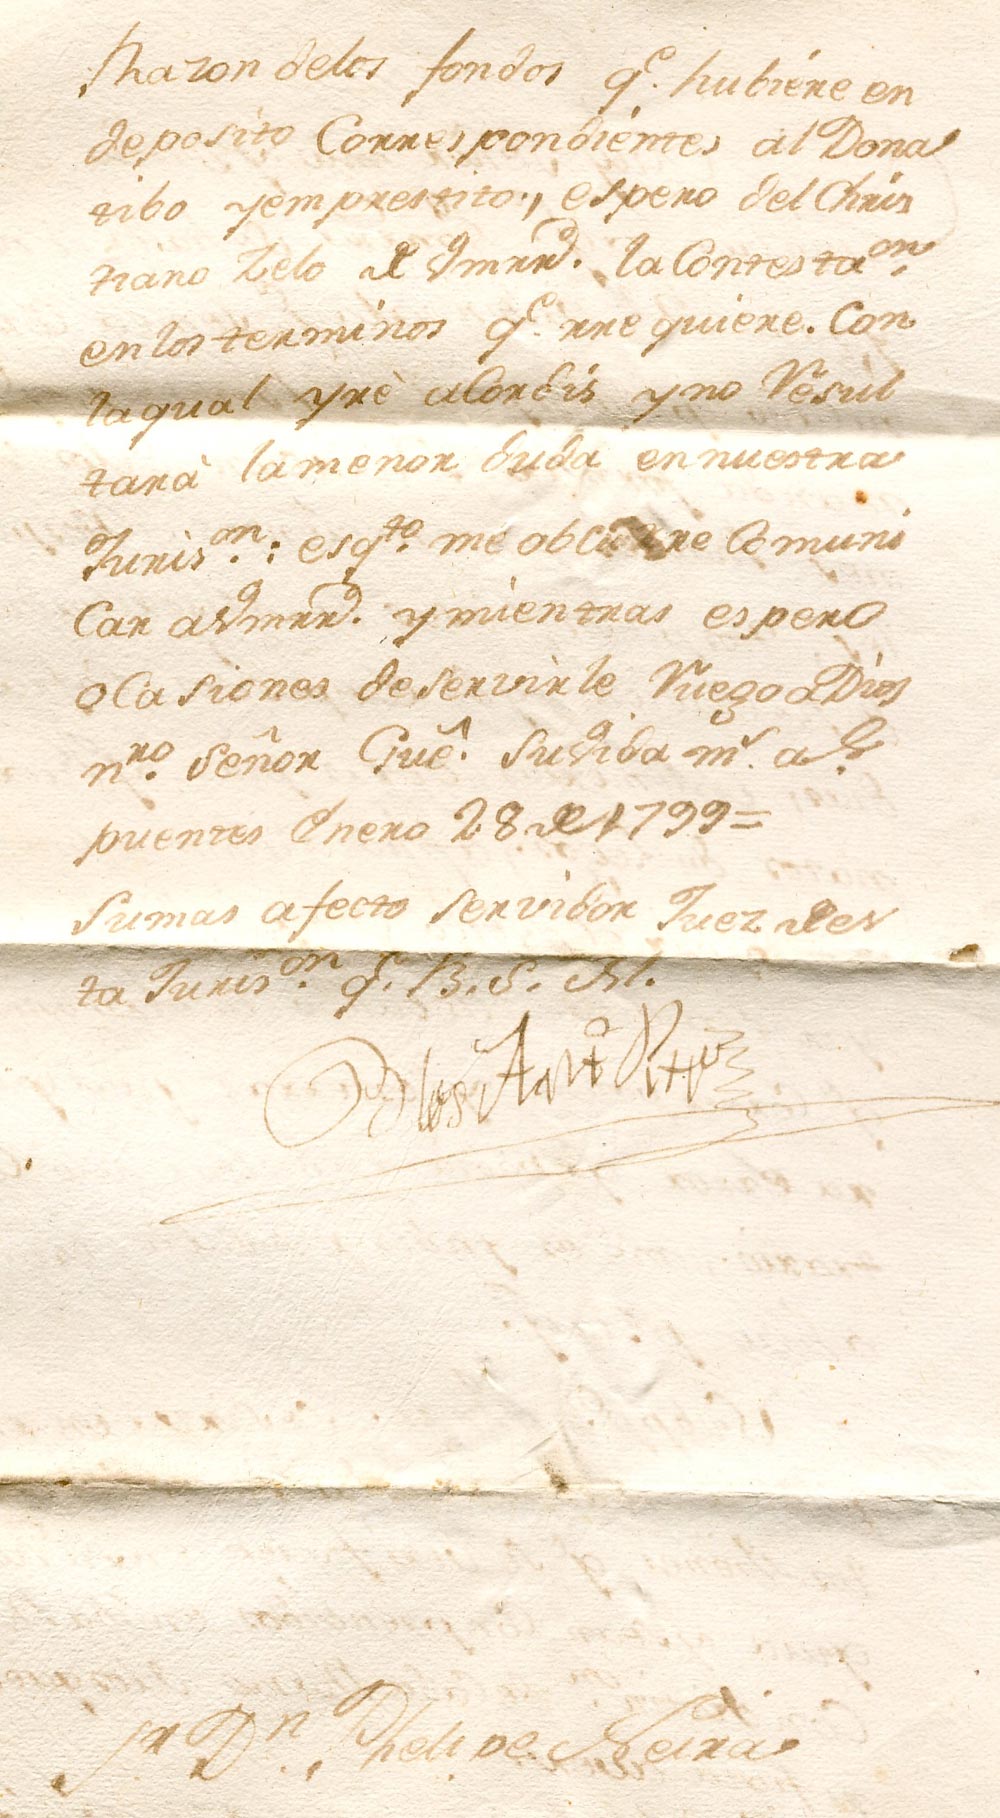 Razon delos fondos q.e hubiere en
deposito Correspondientes al Dona
tibo yemprestito, espero del Chris
tiano Zelo de Vmrrd. la Contesta.on
enlos terminos q.e rrequiere. Con
laqual yrè acordis yno Resul
tarà lamenor duda ennuestra
Juris.on: esq.to me obcurre Comuni
Car aVmrrd. ymientras espero
oCasiones deservirle Ruego aDios
nro. señor Gue. suvida m.s a.s
puentes Enero 28 de 1799=
Sumas afecto servidor Juez des
ta Juris.on q. B. S. M.
Ant.o
Sr Dn. Phelipe Neira